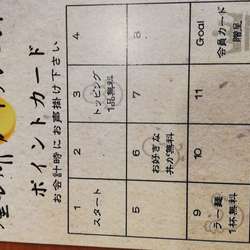 ポイントカード
お会計時にお声掛け下さい
1
スタート
2
3
トッピング
1品無料
4
5
6
お好きな
丼が無料
7
8
9
ラー麺
1杯無料
10
11
Goal
会員カード
贈呈